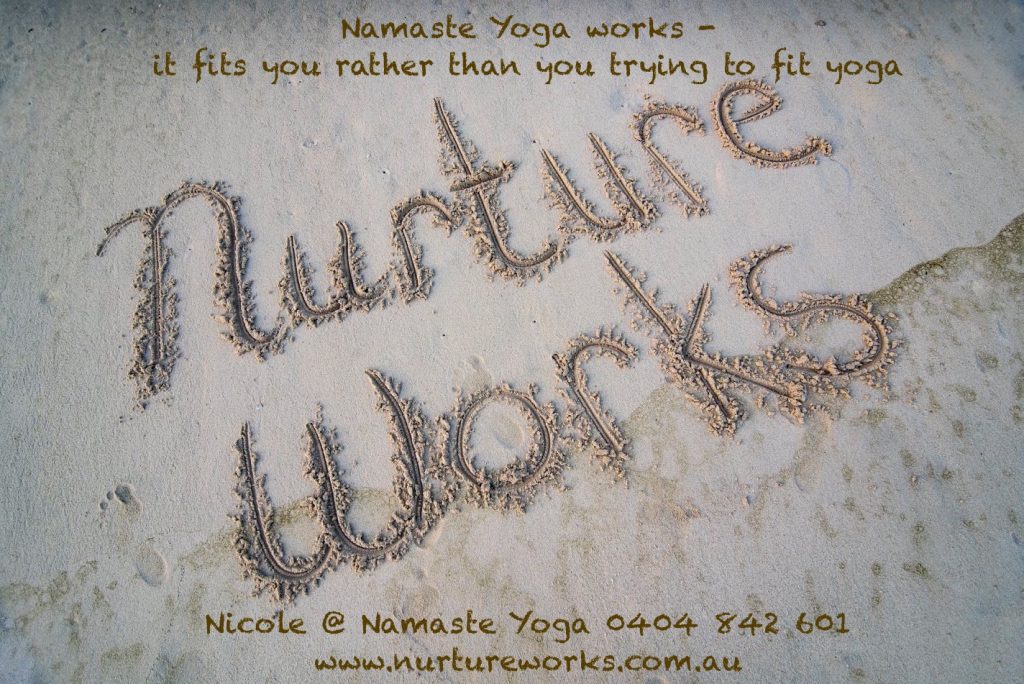 Namaste Yoga works -
it fits you rather than you trying to fit yoga
nurture
works
Nicole @ Namaste Yoga 0404 842 601
www.nurtureworks.com.au